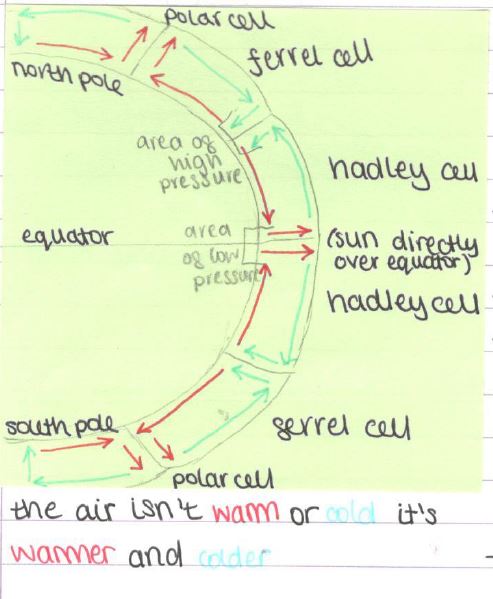 polar cell
ferrel cell
north pole
area of
high
pressure
hadley cell
equator
area
of low
pressure
(sun directly
over equator)
hadley cell
south pole
ferrel cell
polar cell
the air isn't warm or cold it's
warmer and colder